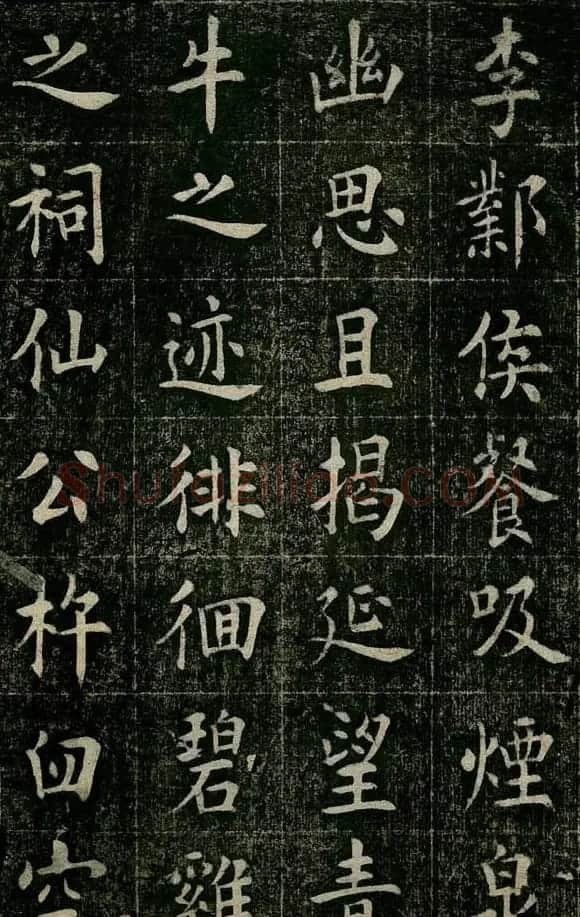 李鄴侯餐吸煙泉
幽思且揭延望青
牛之迹徘徊碧雞
之祠仙公杵臼空
Shufaziliao.COM